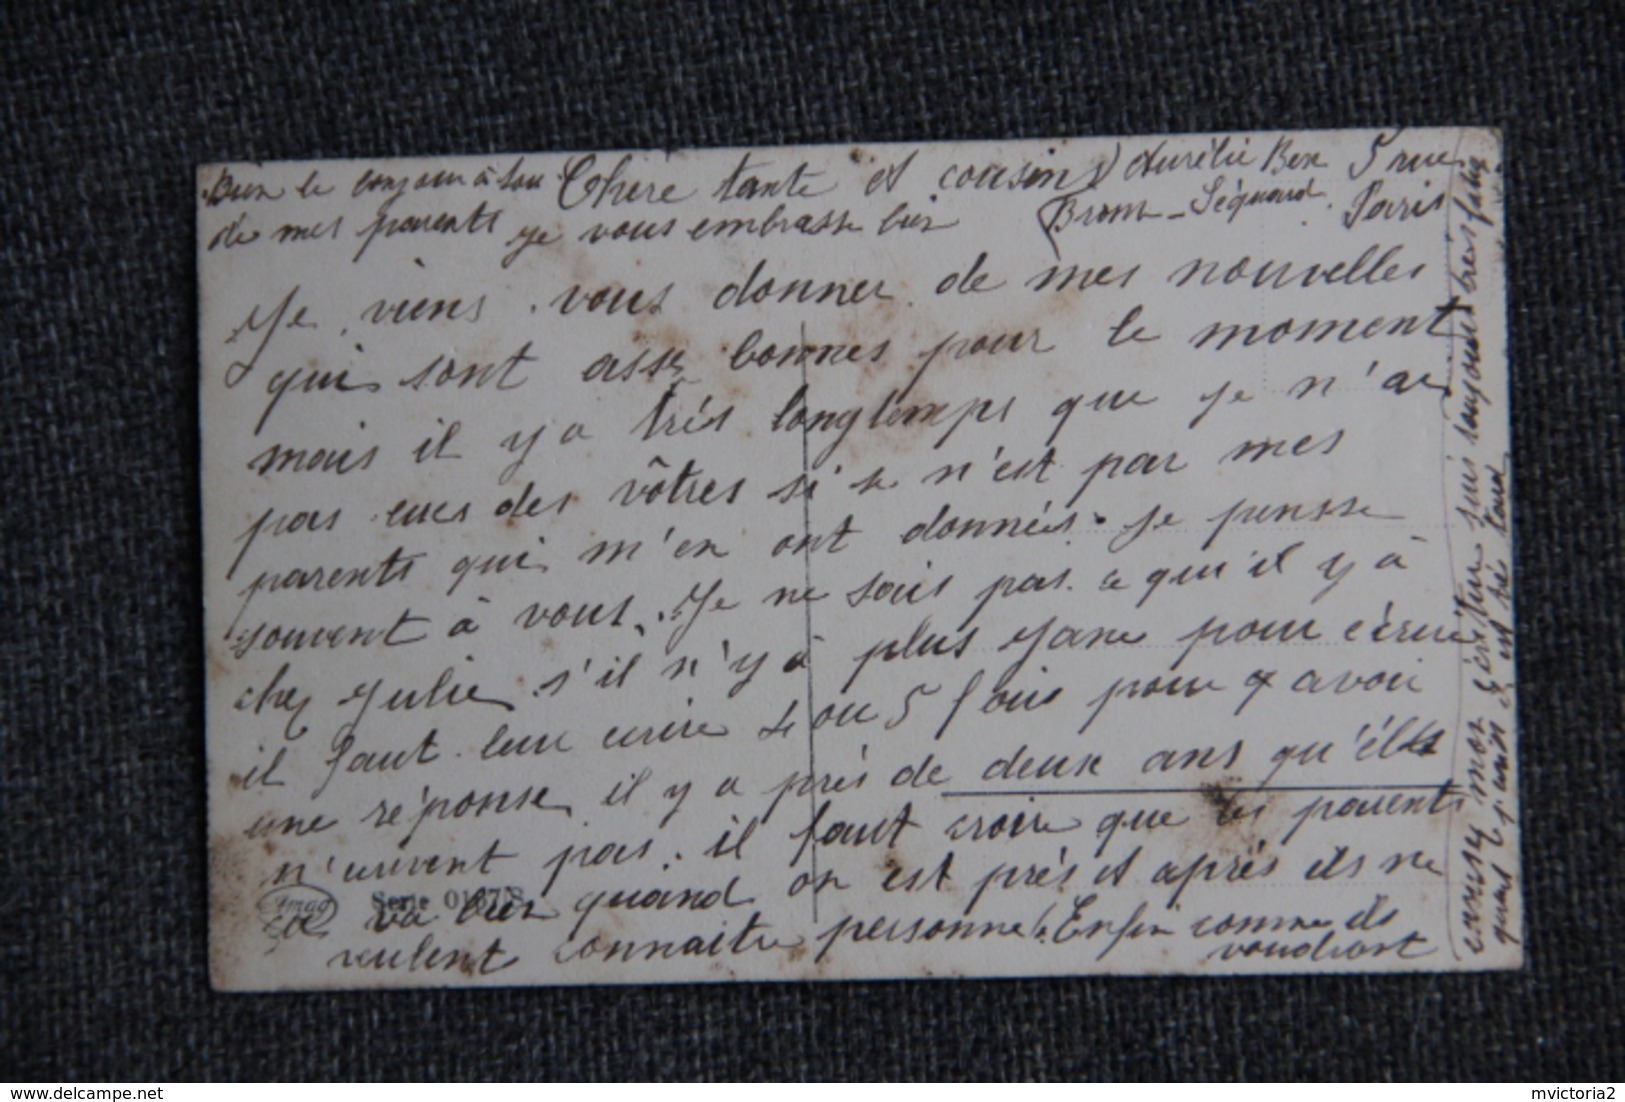 Bien le bonjour à tou
de mes parents je vous embrasse bien
Chère tante et cousins
Aurélie Bex 5 rue
Brown-Séquard. Paris
Je viens vous donner de mes nouvelles
qui sont assez bonnes pour le moment
mais il y a très longtemps que je n'ai
pas eues des vôtres si se n'est par mes
parents qui m'en ont données. Je pensse
souvent à vous. Je ne sais pas ce qu'il y à
chez Julie s'il n'y à plus Jane pour écrire
il faut leur écrire 4 ou 5 fois pour avoir
une réponse, il y a près de deux ans qu'élle
n'ecrivent pas. il faut croire que les parents
sa va bien quand on est près et après ils ne
veulent connaitre personne. Enfin comme ils
voudront
Imag
Serie 0167/8
excusez mon écriture suis toujours très fatig
quand j'écris et il est tré tard
mvictoria2